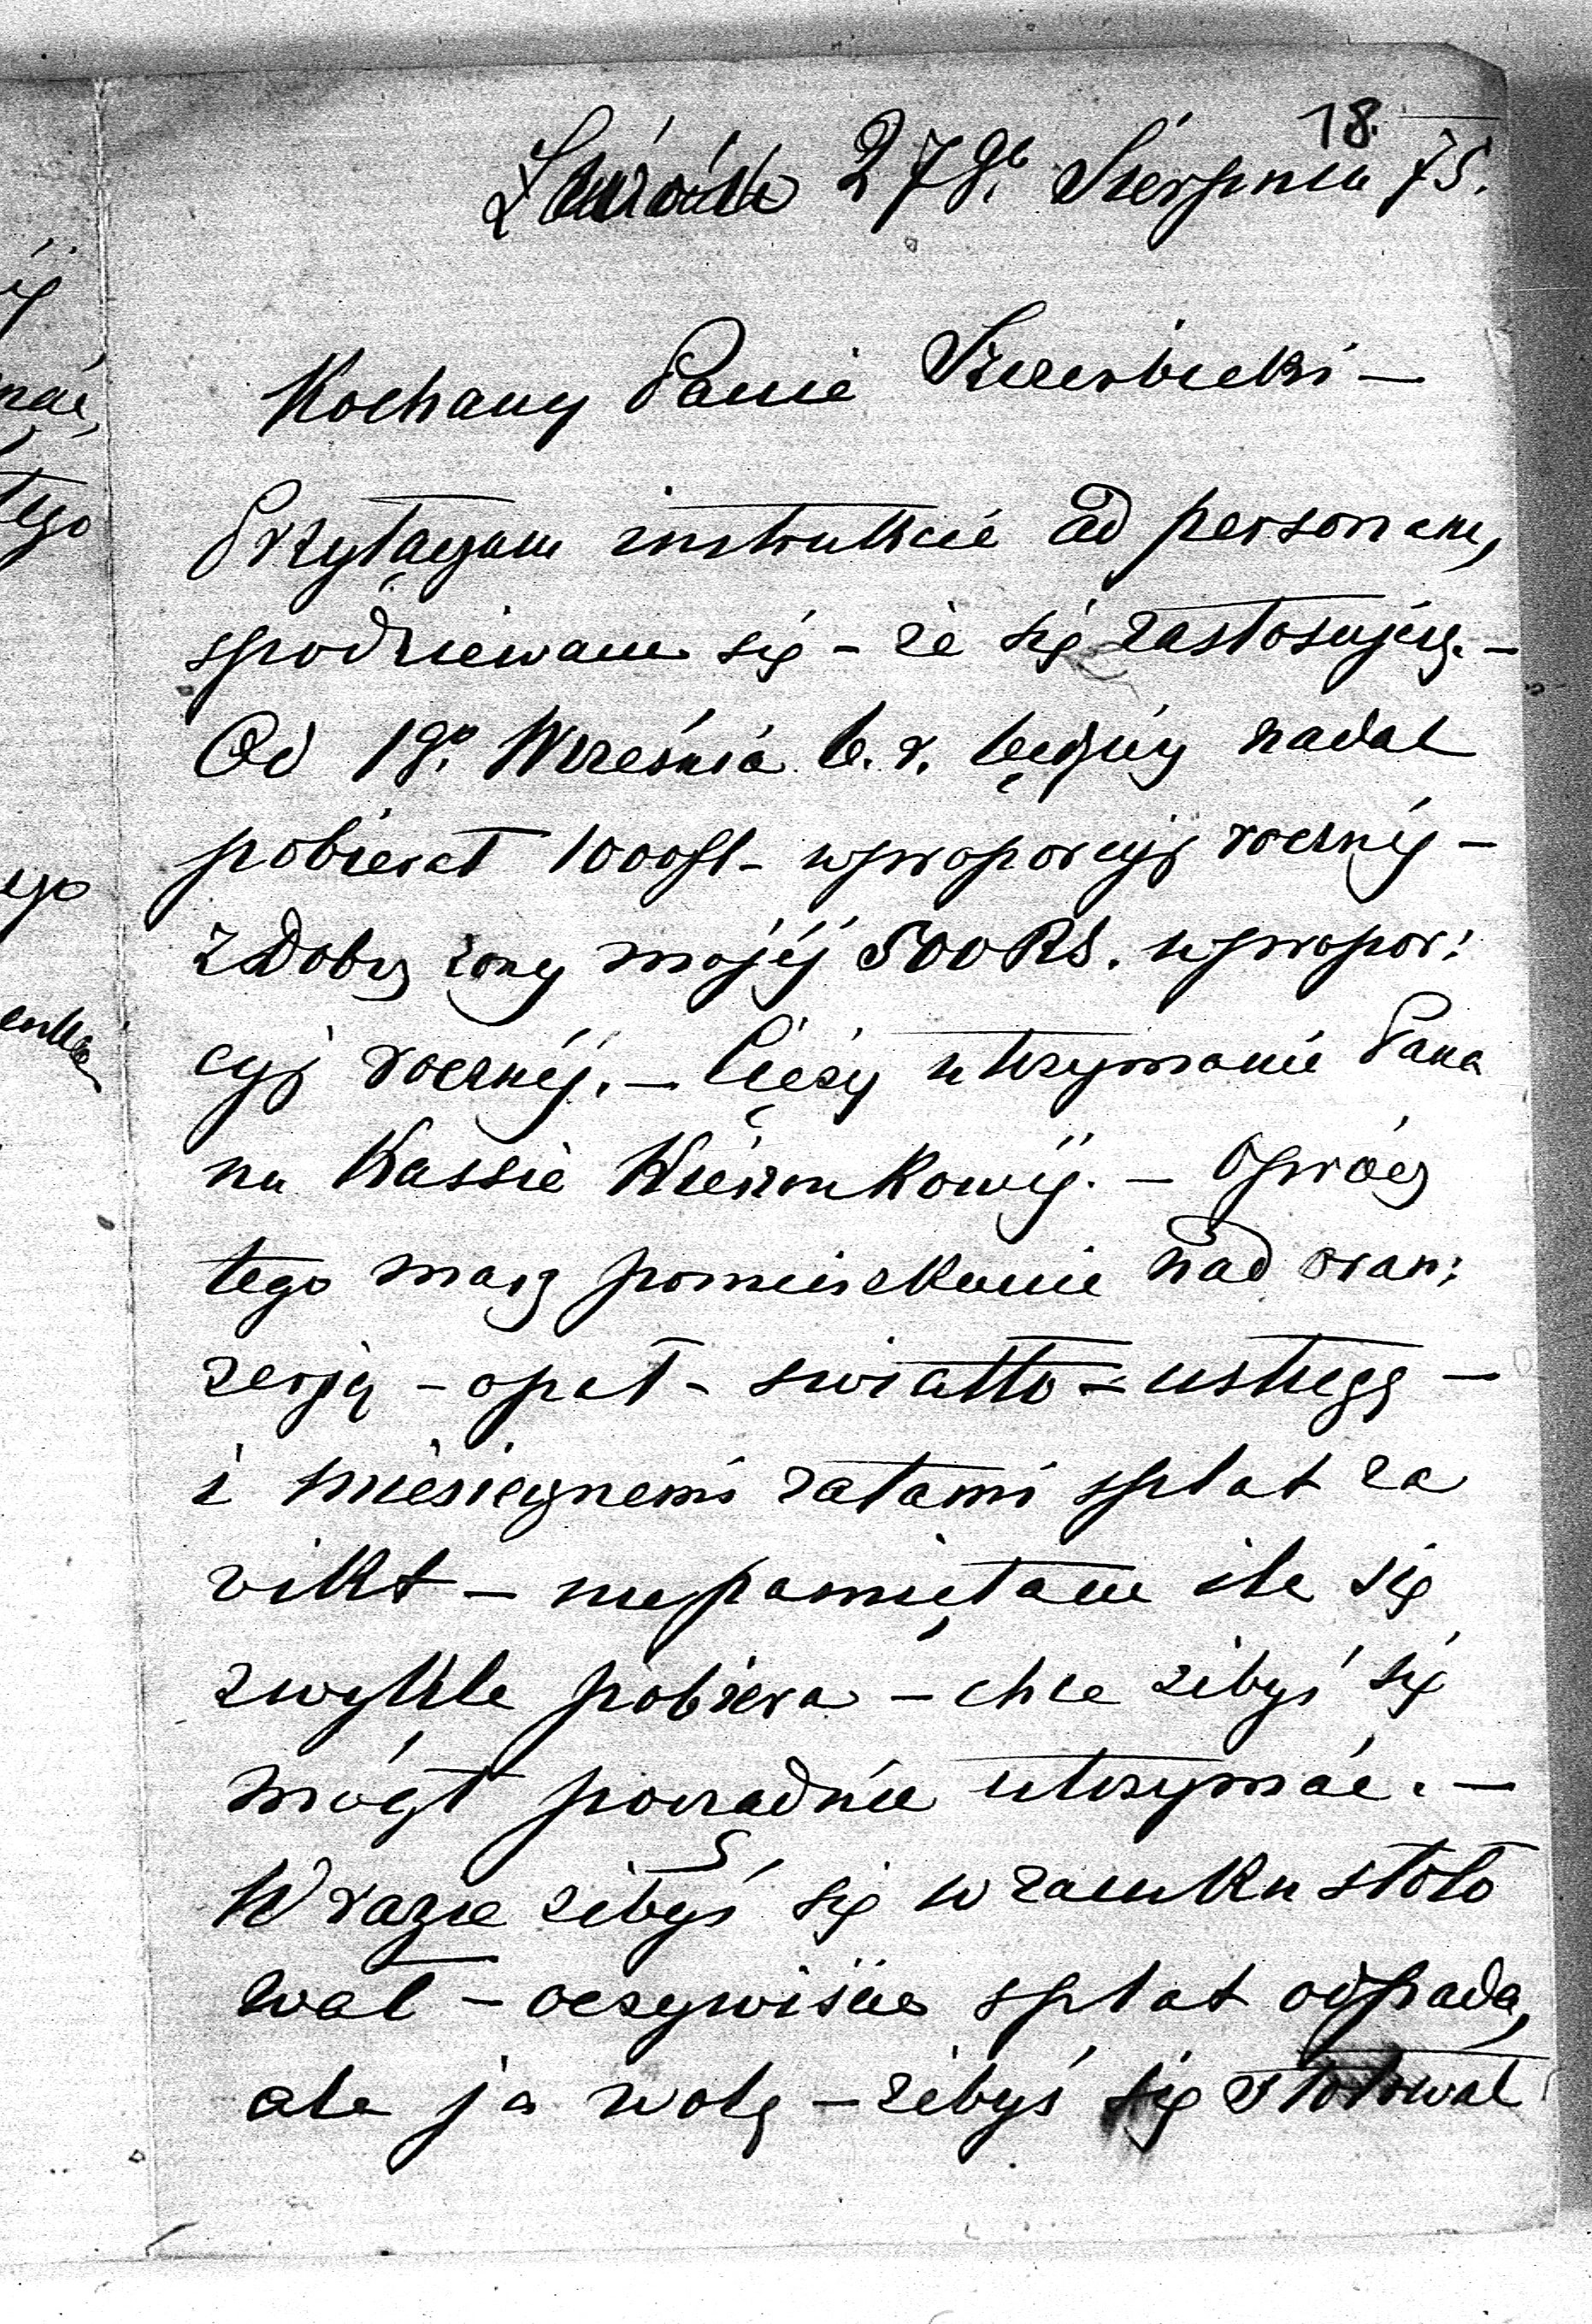 27go Sierpnia 1875.
Kochany Panie Szczerbicki –
Przyłączam instrukcie ad personam,
spodziewam się – że się zastosujesz. –
Od 1go Września b. r. będziesz nadal
pobierał 1000 fl – w proporcyi roczněj –
z Dobr żony mojěj 500 RS. w propor:
cyi roczněj. – Cięży utrzymanie Pana
na Kassie – Oprócz
tego masz pomieszkanie nad oran:
żeriją – opał – swiatło – usługę –
i miesięcznemi ratami spłat za
vikt – niepamiętam ile się
zwykle pobiera – chce żebyś się
mógł porzadnie utrzymać. –
W razie żebyś się w zamku stoło
wał – oczywiście spłat odpada,
ale ja wolę – żebyś się stołował